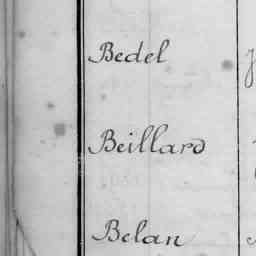 Bedel
Beillard
Belan